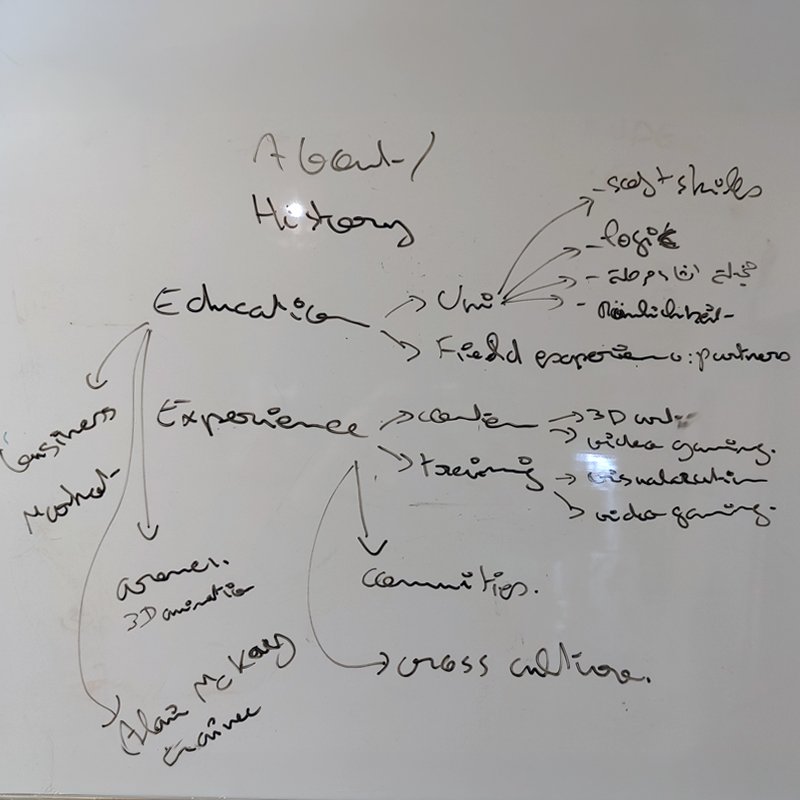 About/
History
Education
Uni
- soft skills
- logik
- Räumlichkeit
Field experience: partners
business
Market
3D animation
Alan McKay
trainee
Experience
3D art
video gaming.
training
visualization
video gaming.
communities.
cross culture.